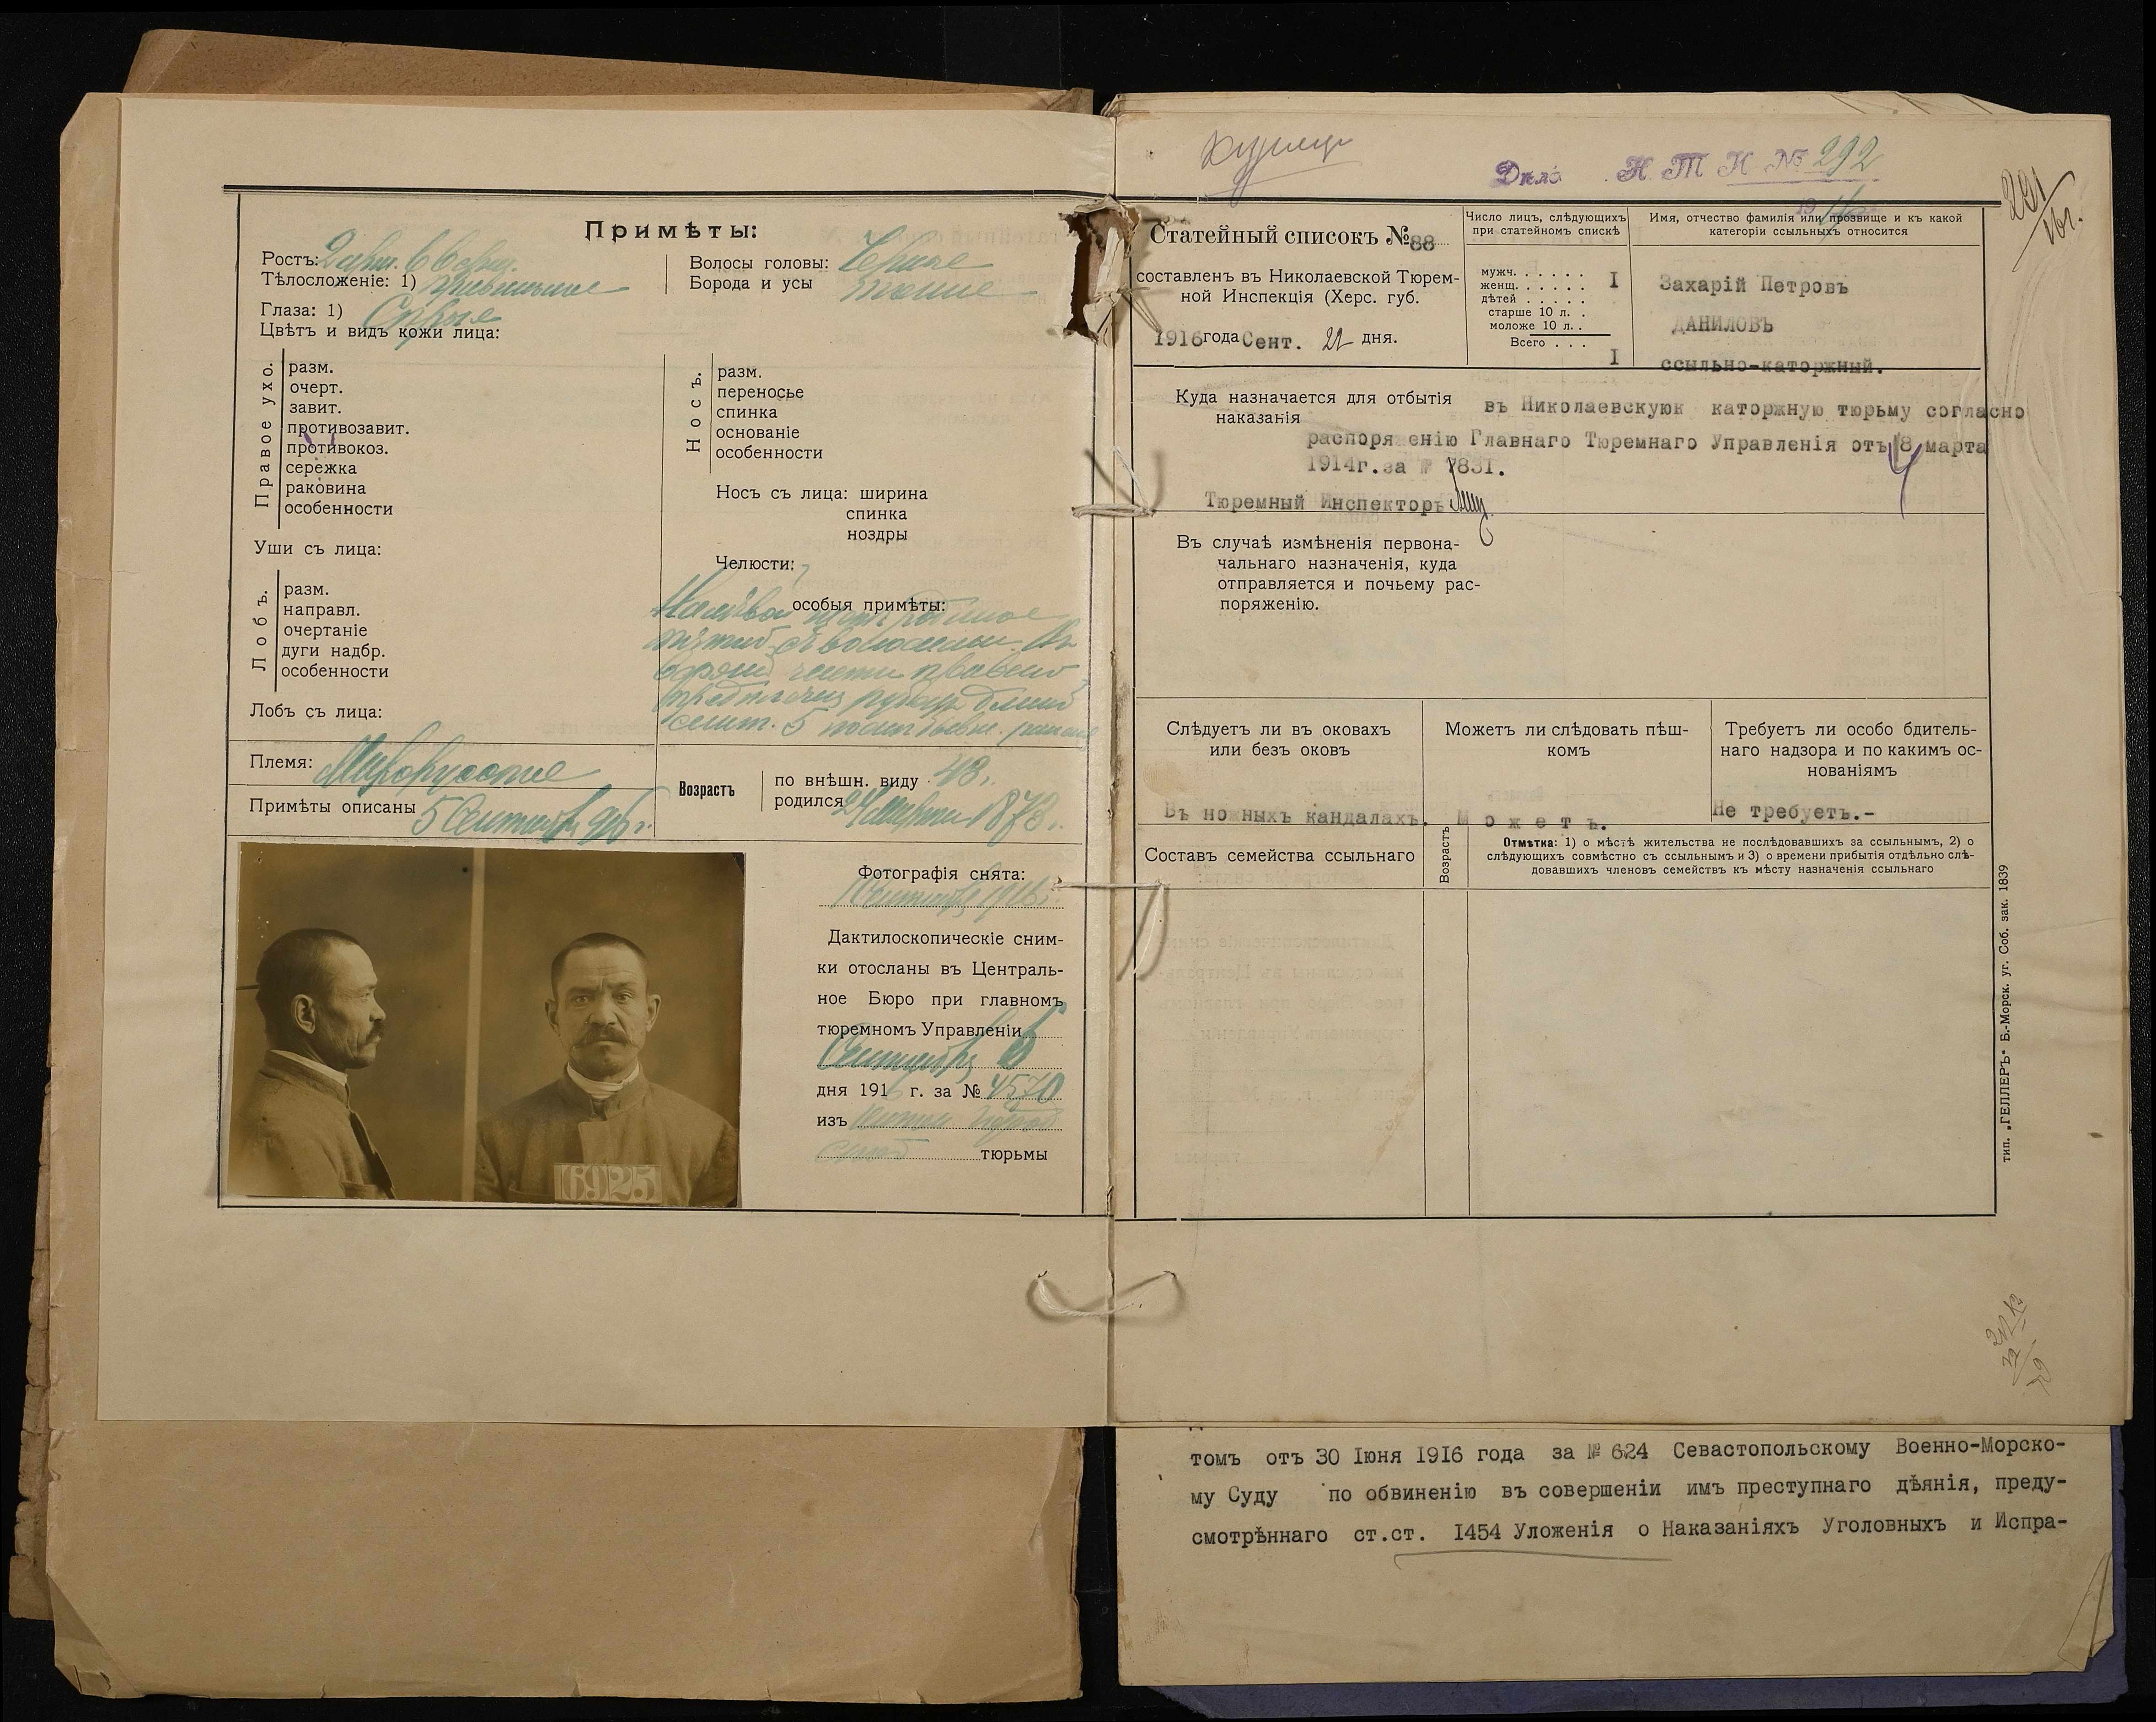 Примѣты:
Ростъ: 2 арш. 6 верш.
Тѣлосложеніе: 1)
Глаза: 1) Сѣрые
Цвѣтъ и видъ кожи лица:
Волосы головы: Черные
Борода и усы тоже
Правое ухо.
разм.
очерт.
завит.
противозавит.
противокоз.
сережка
раковина
особенности
Уши съ лица:
Лобъ.
разм.
направл.
очертаніе
дуги надбр.
особенности
Лобъ съ лица:
Носъ.
разм.
переносье
спинка
основаніе
особенности
Носъ съ лица: ширина
спинка
ноздри
Челюсти:
особыя примѣты:
На лѣвой
съ волосами
части праваго
предплечія рубецъ длиной
сент. 5
Племя:
Примѣты описаны 5 Сентября 916 г.
Возрастъ
по внѣшн. виду 43 г.
родился 24 Марта 1873 г.
Фотографія снята:
Сентября 1916 г.
Дактилоскопическіе сним-
ки отосланы въ Централь-
ное Бюро при главномъ
тюремномъ Управленіи
Сентября 6
дня 1916 г. за № 4570
изъ
тюрьмы
6925
Дѣло Н. Т. К. № 292
1916
291/16г.
Статейный списокъ № 88
составленъ въ Николаевской Тюрем-
ной Инспекція (Херс. губ.
1916 года Сент. 22 дня.
Число лицъ, слѣдующихъ
при статейномъ спискѣ
мужч. . . . . . . I
женщ. . . . . . .
дѣтей . . . . .
старше 10 л. .
моложе 10 л. .
Всего . . . I
Имя, отчество фамилія или прозвище и къ какой
категоріи ссыльныхъ относится
Захарій Петровъ
ДАНИЛОВЪ
ссыльно-каторжный.
Куда назначается для отбытія
наказанія
въ Николаевскуюк каторжную тюрьму согласно
распоряженію Главнаго Тюремнаго Управленія отъ 18 марта
1914г. за № 7831.
Тюремный Инспекторъ
Въ случаѣ измѣненія первона-
чальнаго назначенія, куда
отправляется и почьему рас-
поряженію.
Слѣдуетъ ли въ оковахъ
или безъ оковъ
Въ ножныхъ кандалахъ.
Можетъ ли слѣдовать пѣш-
комъ
Можетъ.
Требуетъ ли особо бдитель-
наго надзора и по какимъ ос-
нованіямъ
Не требуетъ.-
Составъ семейства ссыльнаго
Возрастъ
Отмѣтка: 1) о мѣстѣ жительства не послѣдовавшихъ за ссыльнымъ, 2) о
слѣдующихъ совмѣстно съ ссыльнымъ и 3) о времени прибытія отдѣльно слѣ-
довавшихъ членовъ семействъ къ мѣсту назначенія ссыльнаго
тип. „ГЕЛЛЕРЪ" Б.-Морск. уг. Соб. зак. 1839
томъ отъ 30 Іюня 1916 года за № 624 Севастопольскому Военно-Морско-
му Суду по обвиненію въ совершеніи имъ преступнаго дѣянія, преду-
смотрѣннаго ст.ст. I454 Уложенія о Наказаніяхъ Уголовныхъ и Испра-